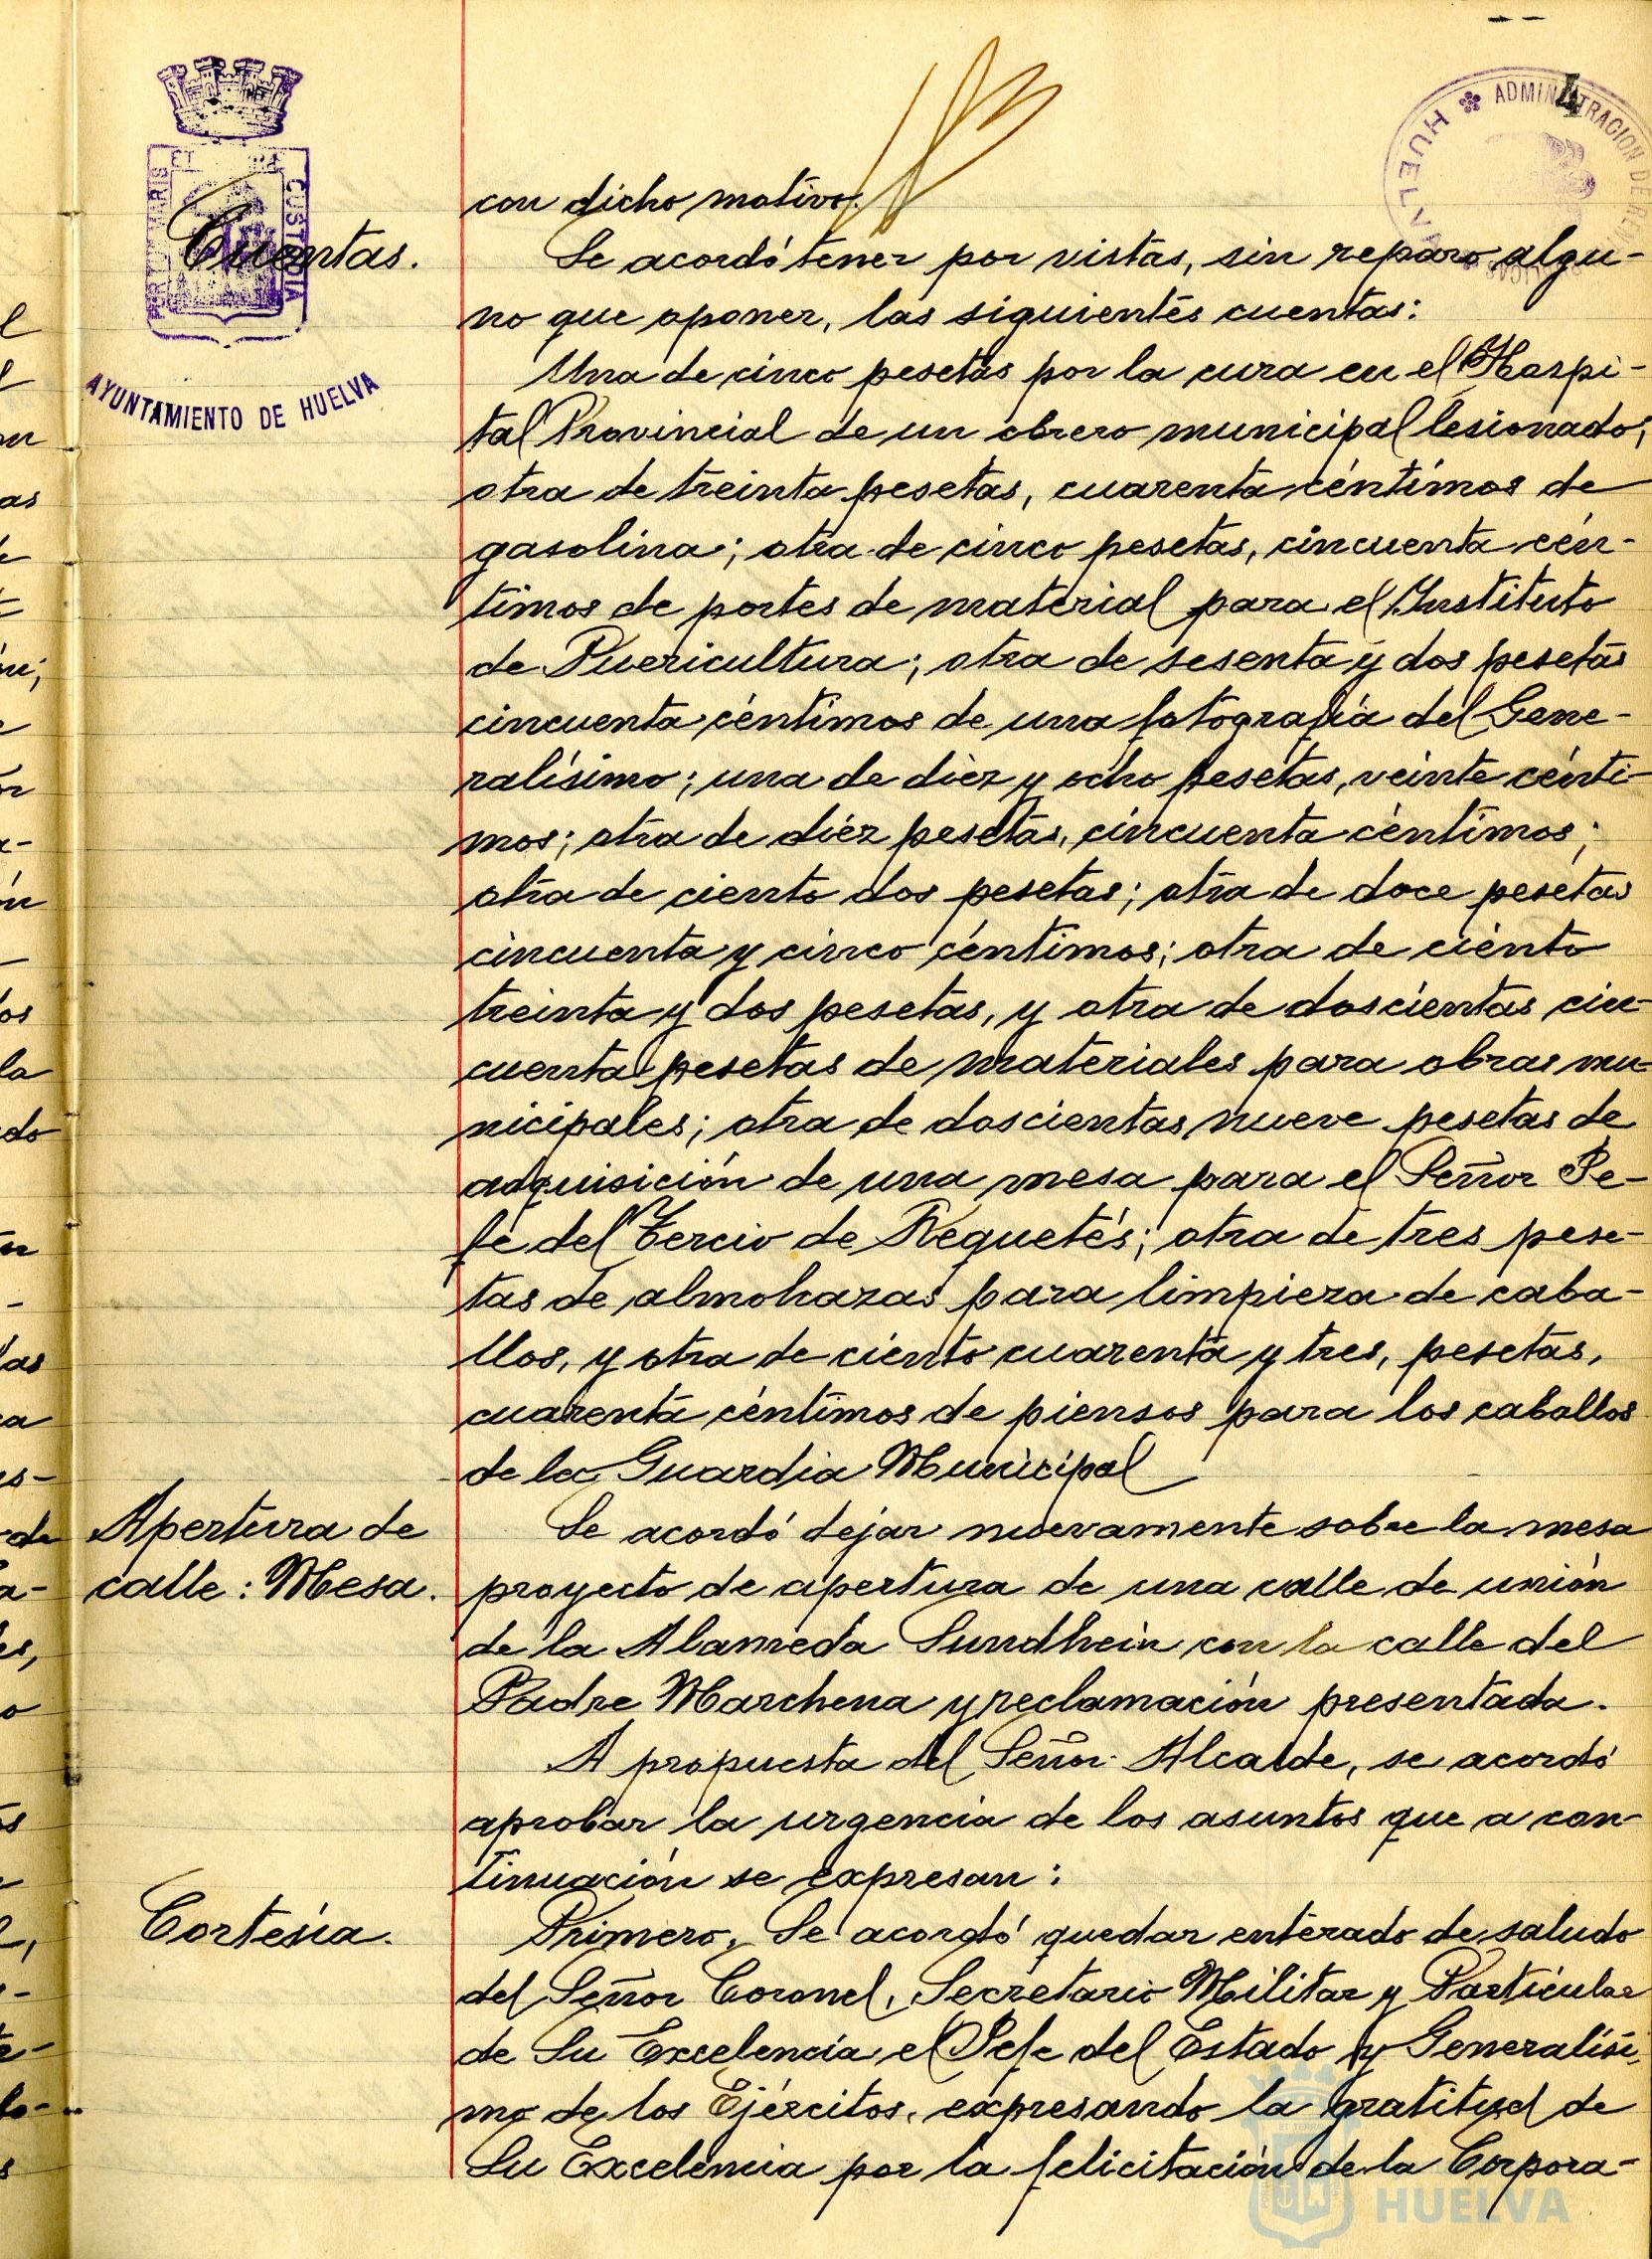 4
ADMINISTRACION DE
HUELVA
ET
CUSTODIA
AYUNTAMIENTO DE HUELVA
con dicho motivo.
Cuentas.
Se acordó tener por vistas, sin reparo algu-
no que oponer, las siguientes cuentas:
Una de cinco pesetas por la cura en el Hospi-
tal Provincial de un obrero municipal lesionado;
otra de treinta pesetas, cuarenta céntimos de
gasolina; otra de cinco pesetas, cincuenta cén-
timos de portes de material para el Instituto
de Puericultura; otra de sesenta y dos pesetas
cincuenta céntimos de una fotografía del Gene-
ralísimo; una de diez y ocho pesetas, veinte cénti-
mos; otra de diez pesetas, cincuenta céntimos;
otra de ciento dos pesetas; otra de doce pesetas
cincuenta y cinco céntimos; otra de ciento
treinta y dos pesetas, y otra de doscientas cin-
cuenta pesetas de materiales para obras mu-
nicipales; otra de doscientas nueve pesetas de
adquisición de una mesa para el Señor Je-
fe del Tercio de Requetés; otra de tres pese-
tas de almohazas para limpieza de caba-
llos, y otra de ciento cuarenta y tres, pesetas,
cuarenta céntimos de piensos para los caballos
de la Guardia Municipal
Apertura de
calle: Mesa.
Se acordó dejar nuevamente sobre la mesa
proyecto de apertura de una calle de unión
de la Alameda Sundhein con la calle del
Padre Marchena y reclamación presentada.
A propuesta del Señor Alcalde, se acordó
aprobar la urgencia de los asuntos que a con-
tinuación se expresan:
Cortesía.
Primero, Se acordó quedar enterado de saludo
del Señor Coronel, Secretario Militar y Particular
de Su Excelencia el Jefe del Estado y Generalísi-
mo de los Ejércitos, expresando la gratitud de
Su Excelencia por la felicitación de la Corpora-
HUELVA